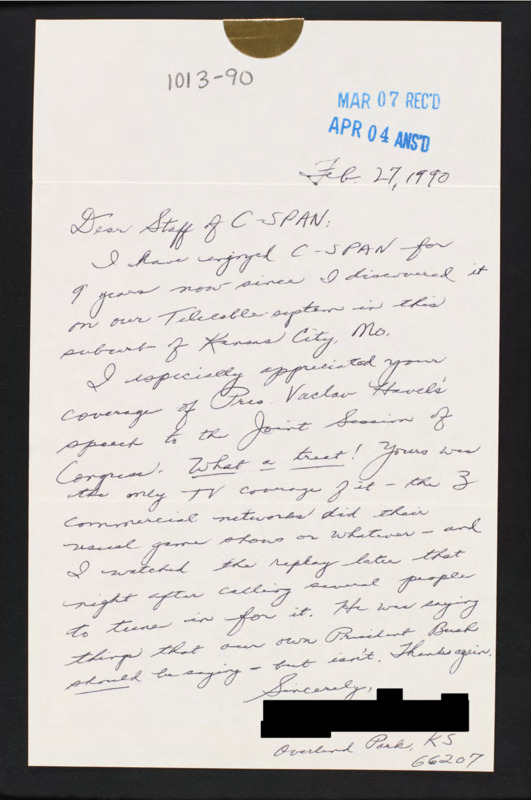 1013-90
MAR 07 REC'D
APR 04 ANS'D
Feb. 27, 1990
Dear Staff of C-SPAN:
I have enjoyed C-SPAN for
9 years now since I discovered it
on our Telecable system in this
suburb of Kansas City, Mo.
I especially appreciated your
coverage of Pres. Vaclav Havel's
speech to the Joint Session of
Congress. What a treat! Yours was
the only TV coverage of it - the 3
commercial networks did their
usual game shows or whatever - and
I watched the replay later that
night after calling several people
to tune in for it. He was saying
things that our own President Bush
should be saying - but isn't. Thanks again.
Sincerely,
Overland Park, KS
66207